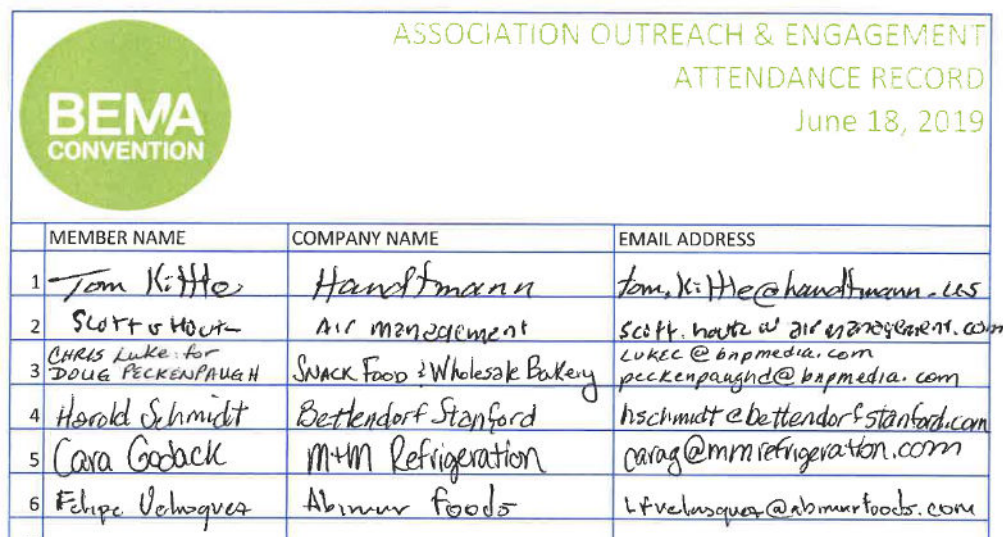 ASSOCIATION OUTREACH & ENGAGEMENT
ATTENDANCE RECORD
June 18, 2019
BEMA
CONVENTION
MEMBER NAME COMPANY NAME EMAIL ADDRESS
1 Tom Kittle Handtmann tom.kittle@handtmann.us
2 Scott Air management
3 CHRIS Luke for LUKEC@bnpmedia.com
DOUG PECKENPAUGH SNACK FOOD & Wholesale Bakery peckenpaughd@bnpmedia.com
4 Harold Schmidt Bettendorf Stanford hschmidt@bettendorfstanford.com
5 Cara Godack M+M Refrigeration carag@mmrefrigeration.com
6 Felipe Velasquez Abimar Foods lfvelasquez@abimarfoods.com